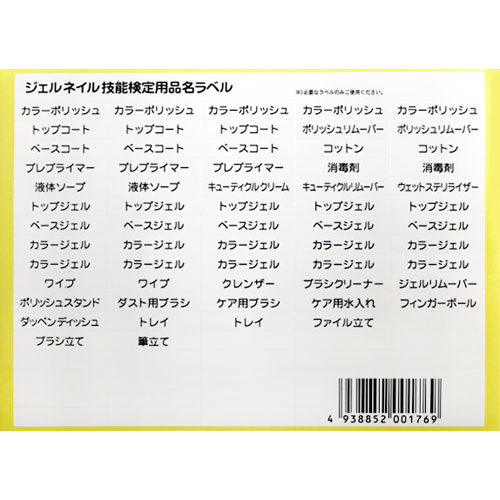 ジェルネイル技能検定用品名ラベル ※)必要なラベルのみご使用ください。
カラーポリッシュ カラーポリッシュ カラーポリッシュ カラーポリッシュ カラーポリッシュ
トップコート トップコート トップコート ポリッシュリムーバー ポリッシュリムーバー
ベースコート ベースコート ベースコート コットン コットン
プレプライマー プレプライマー プレプライマー 消毒剤 消毒剤
液体ソープ 液体ソープ キューティクルクリーム キューティクルリムーバー ウェットステリライザー
トップジェル トップジェル トップジェル トップジェル トップジェル
ベースジェル ベースジェル ベースジェル ベースジェル ベースジェル
カラージェル カラージェル カラージェル カラージェル カラージェル
カラージェル カラージェル カラージェル カラージェル カラージェル
ワイプ ワイプ クレンザー ブラシクリーナー ジェルリムーバー
ポリッシュスタンド ダスト用ブラシ ケア用ブラシ ケア用水入れ フィンガーボール
ダッペンディッシュ トレイ トレイ ファイル立て
ブラシ立て 筆立て
4 938852 001769